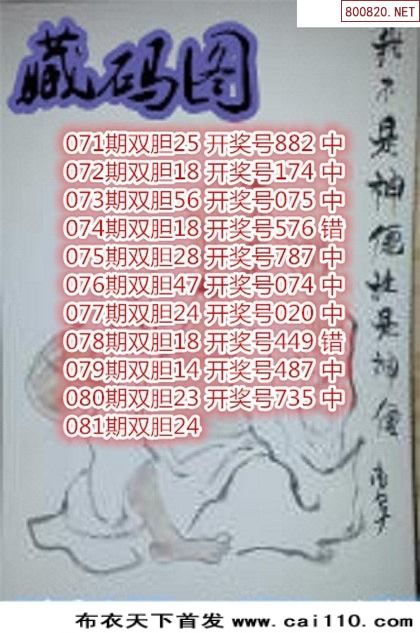 800820.NET
藏码图
071期双胆25 开奖号882 中
072期双胆18 开奖号174 中
073期双胆56 开奖号075 中
074期双胆18 开奖号576 错
075期双胆28 开奖号787 中
076期双胆47 开奖号074 中
077期双胆24 开奖号020 中
078期双胆18 开奖号449 错
079期双胆14 开奖号487 中
080期双胆23 开奖号735 中
081期双胆24
我不是神便也是神便
布衣天下首发 www.cai110.com